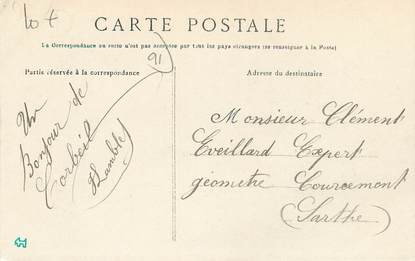 10 F
CARTE POSTALE
La Correspondance au recto n'est pas acceptée par tous les pays étrangers (se renseigner à la Poste)
Partie réservée à la correspondance
Adresse du destinataire
91
Un
Bonjour de
Corbeil
Monsieur Clément
Eveillard Expert
géometre Courcemont
(Sarthe)